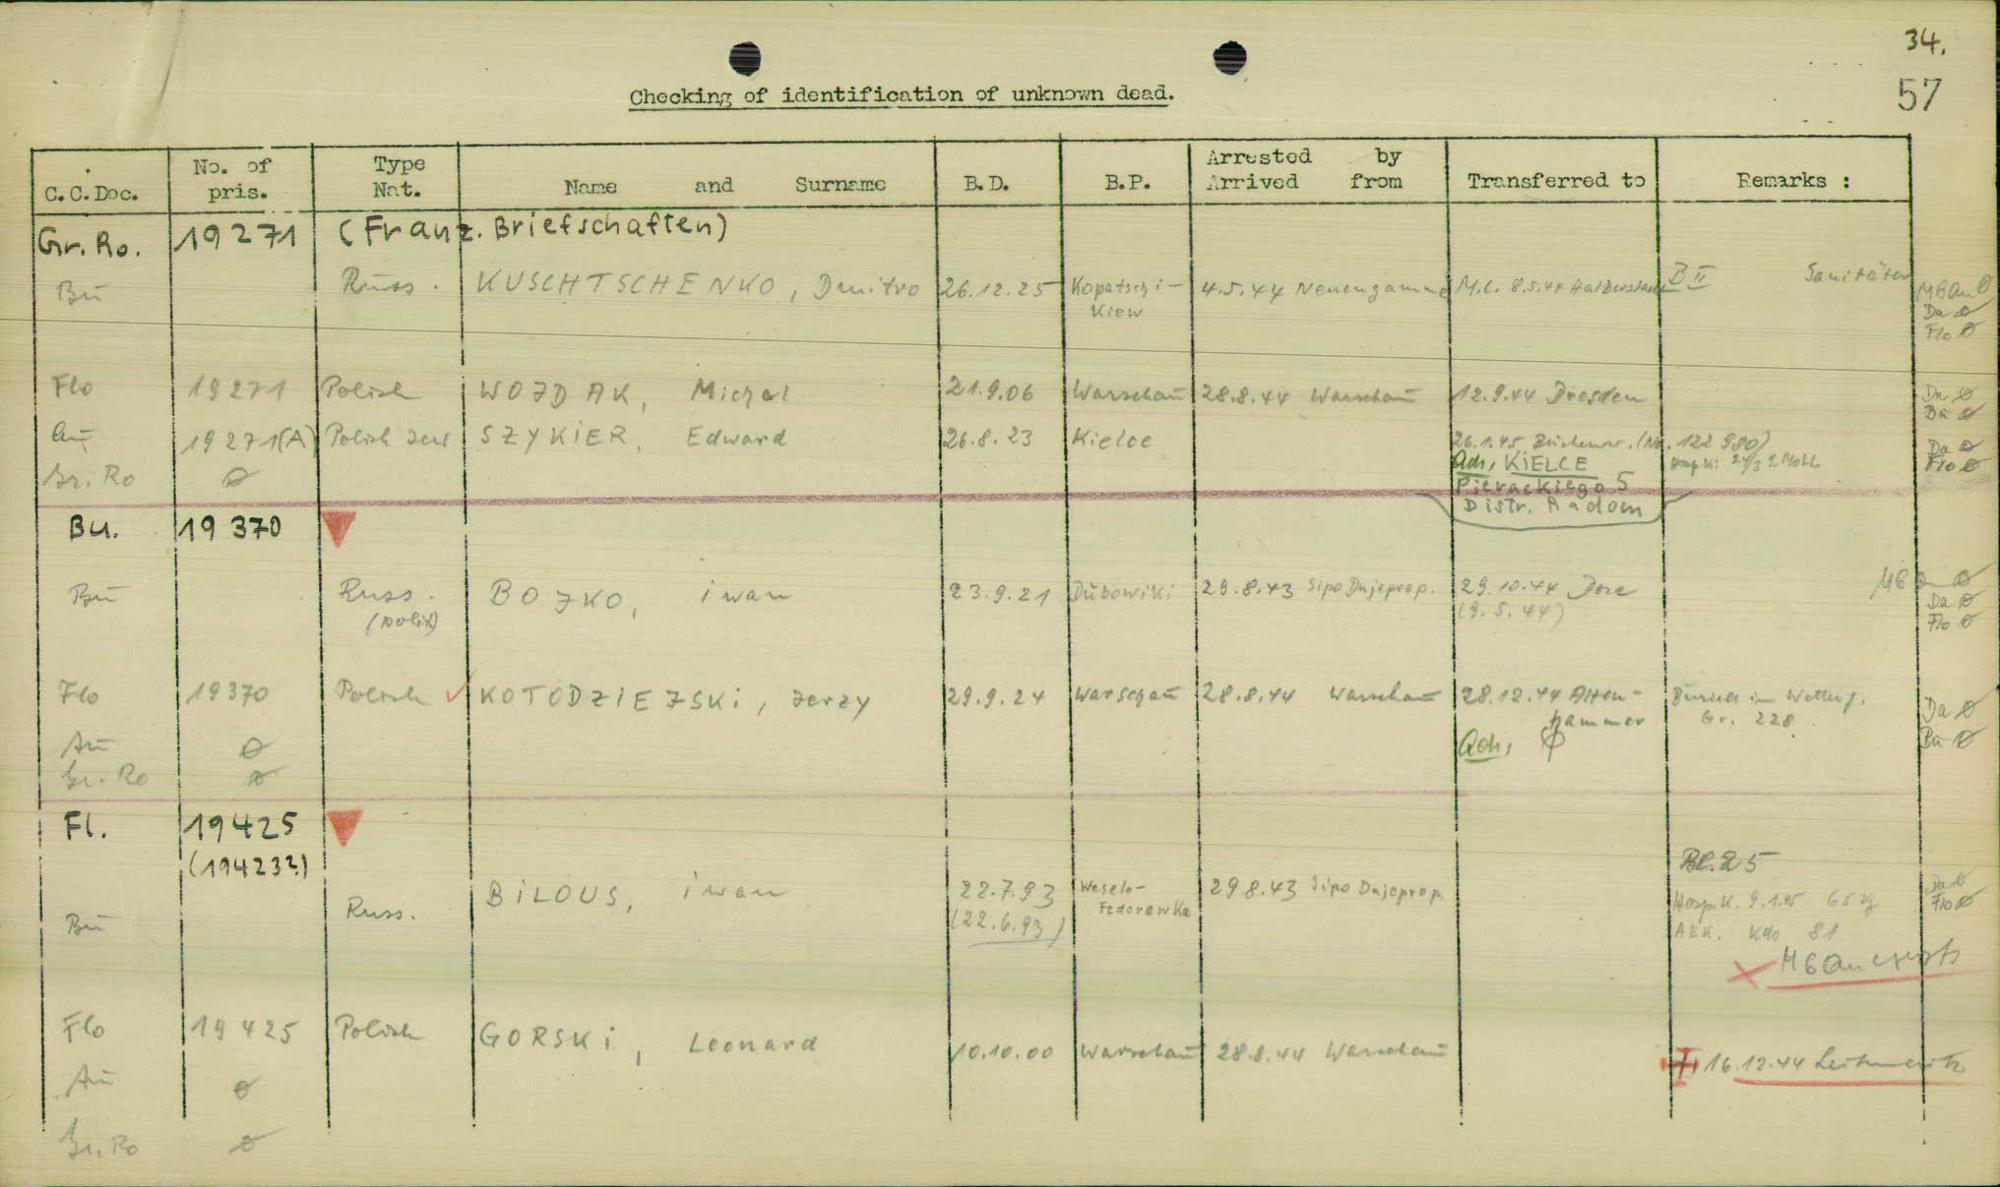 34.
57
Checking of identification of unknown dead.
C.C.Doc. No. of pris. Type Nat. Name and Surname B.D. B.P. Arrested by Arrived from Transferred to Remarks :
Gr. Ro. 19271 (Franz. Briefschaften)
Bu Russ. KUSCHTSCHENKO, Dmitro 26.12.25 Kopatschi- 4.5.44 Neuengamme 8.5.44 Halberstadt B II Sanitäter
Kiew Da ø
Flo ø
Flo 19271 Polish WOJDAK, Michal 21.9.06 Warschau 28.8.44 Warschau 12.9.44 Dresden Da ø
Bu ø
Au 19271(A) Polish Jew SZYKIER, Edward 26.8.23 Kielce 26.1.45 Buchenw. (No. 122 980) Da ø
Adr. KIELCE Flo ø
Gr. Ro ø Pierackiego 5
Distr. Radom
Bu. 19370
Bu Russ. BOJKO, iwan 23.9.21 Dubowiki 29.8.43 Sipo Dnjeprop. 29.10.44 Dora Da ø
(polit) (9.5.44) Flo ø
Flo 19370 Polish KOTODZIEJSKi, Jerzy 29.9.24 Warschau 28.8.44 Warschau 28.12.44 Alten- Zurück im
hammer Gr. 228 Da ø
Au ø Adr. ø Bu ø
Gr. Ro ø
Fl. 19425
(19423?)
Bl. 25
Bu Russ. BiLOUS, iwan 22.7.93 Wesela- 29.8.43 Sipo Dnjeprop. Hosp.K. 9.1.45 65 kg Da ø
(22.6.93) Fedorowka Kdo 81 Flo ø
Flo 19425 Polish GORSKi, Leonard 10.10.00 Warschau 28.8.44 Warschau 16.12.44 Leitmeritz
Au ø
Gr. Ro ø